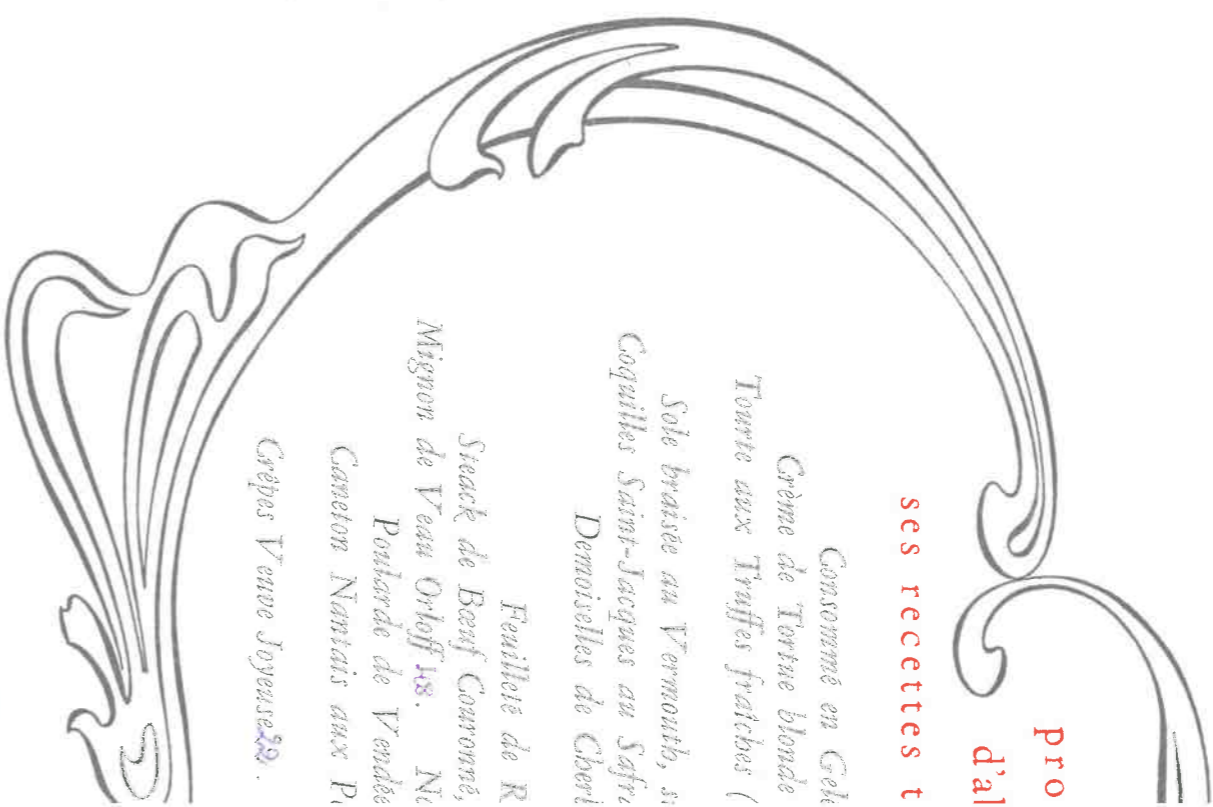 pro
d'al
ses recettes t
Consommé en Gel
Crème de Tortue blonde
Tourte aux Truffes fraîches (
Sole braisée au Vermouth, s
Coquilles Saint-Jacques au Safr
Demoiselles de Cher
Feuilleté de R
Steack de Bœuf Couronné,
Mignon de Veau Orloff 48. N
Poularde de Vendée
Caneton Nantais aux P
Crêpes Veuve Joyeuse 22.